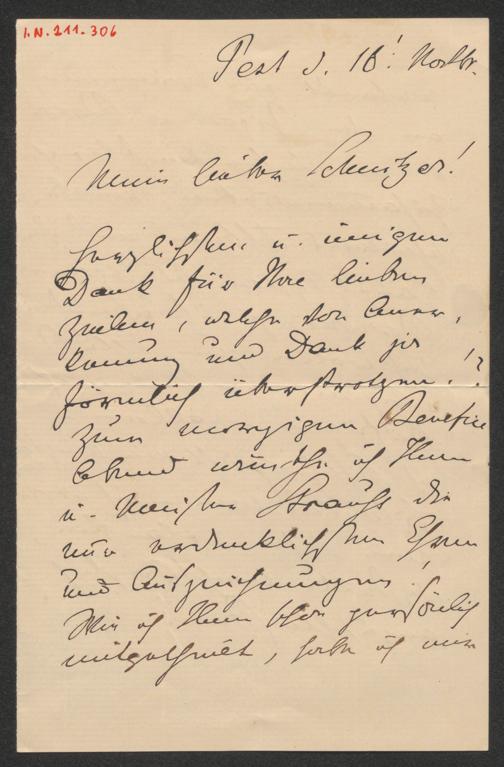 I.N. 211.306
Pest d. 18! Novbr.
Mein lieber Schnitzer!
Herzlichsten u. innigen
Dank für Ihre lieben
Zeilen, welche von Aner,
kennung und Dank ja
förmlich überstrotzen.!?
Zum morgigen Benefice
Abend wünsche ich Ihnen
u. Meister Strauss die
nur erdenklichsten Ehren
und Auszeichnungen!
Wie ich Ihnen schon persönlich
mitgetheilt, habe ich mir